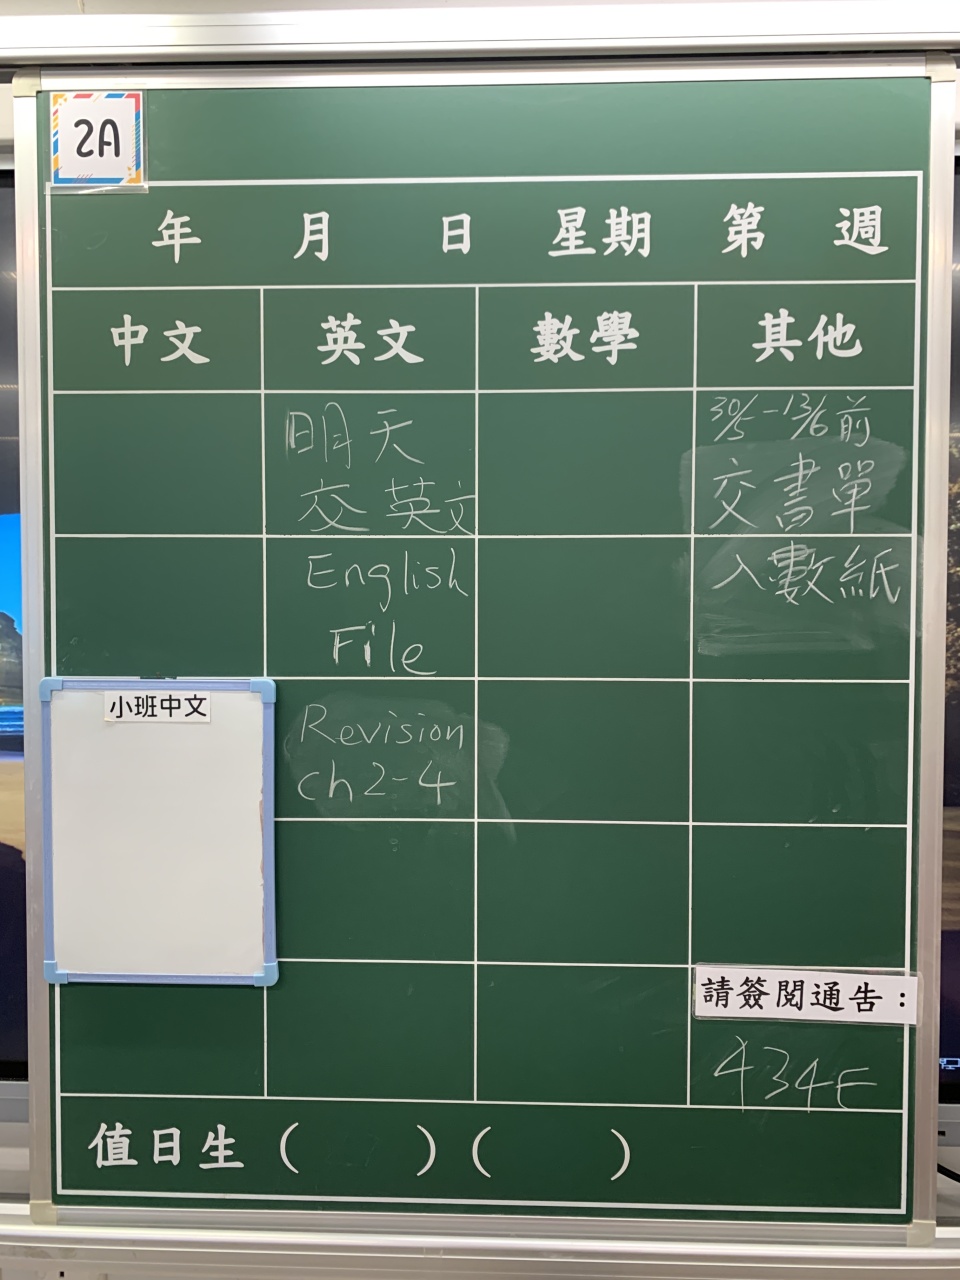 2A
年 月 日 星期 第 週
中文 英文 數學 其他
明天
交英文
English
File
Revision
ch 2-4
30/5-13/6前
交書單
入數紙
小班中文
請簽閱通告：
434E
值日生 ( ) ( )